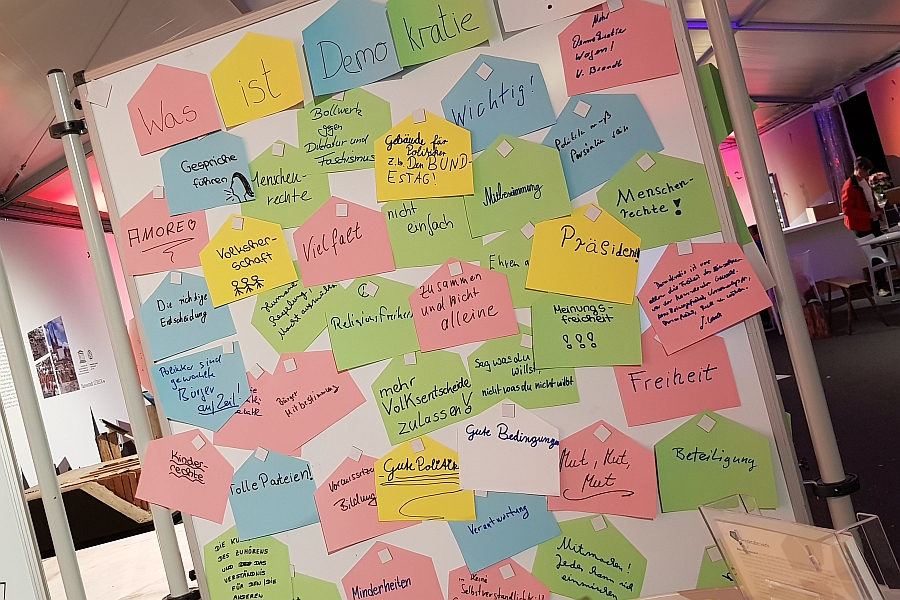 Was
ist
Demo
kratie
Mehr
Demokratie
wagen!
V. Brandt
Wichtig!
Bollwerk
gegen
Diktatur und
Faschismus
Gebäude für
Politiker
z.b. Den BUND-
ESTAG!
Politik muß
Persönlich sein
Gespräche
führen
Menschen-
rechte
Mitbestimmung
Menschen-
rechte!
AMORE
Volksher-
schaft
Vielfalt
nicht
einfach
Präsident!
Die richtige
Entscheidung
Religionsfreiheit
Zusammen
und nicht
alleine
Ehren
Meinungs-
freiheit
!!!
Politiker sind
gewählte
Bürger
auf Zeit!
Bürger
Mitbestimmung
mehr
Volksentscheide
zulassen!
Sag was du
willst,
nicht was du nicht willst
Freiheit
Kinder-
rechte
tolle Parteien!
Bildung
Gute Politik
Gute Bedingungen
Mut, Mut,
Mut
Beteiligung
Verantwortung
DIE KU
DES ZUHÖRENS
UND DAS
VERSTÄNDNIS
FÜR DEN/DIE
ANDEREN
Minderheiten
keine
Selbstverständlichkeit
Mitmachen!
Jeder kann sich
einmischen